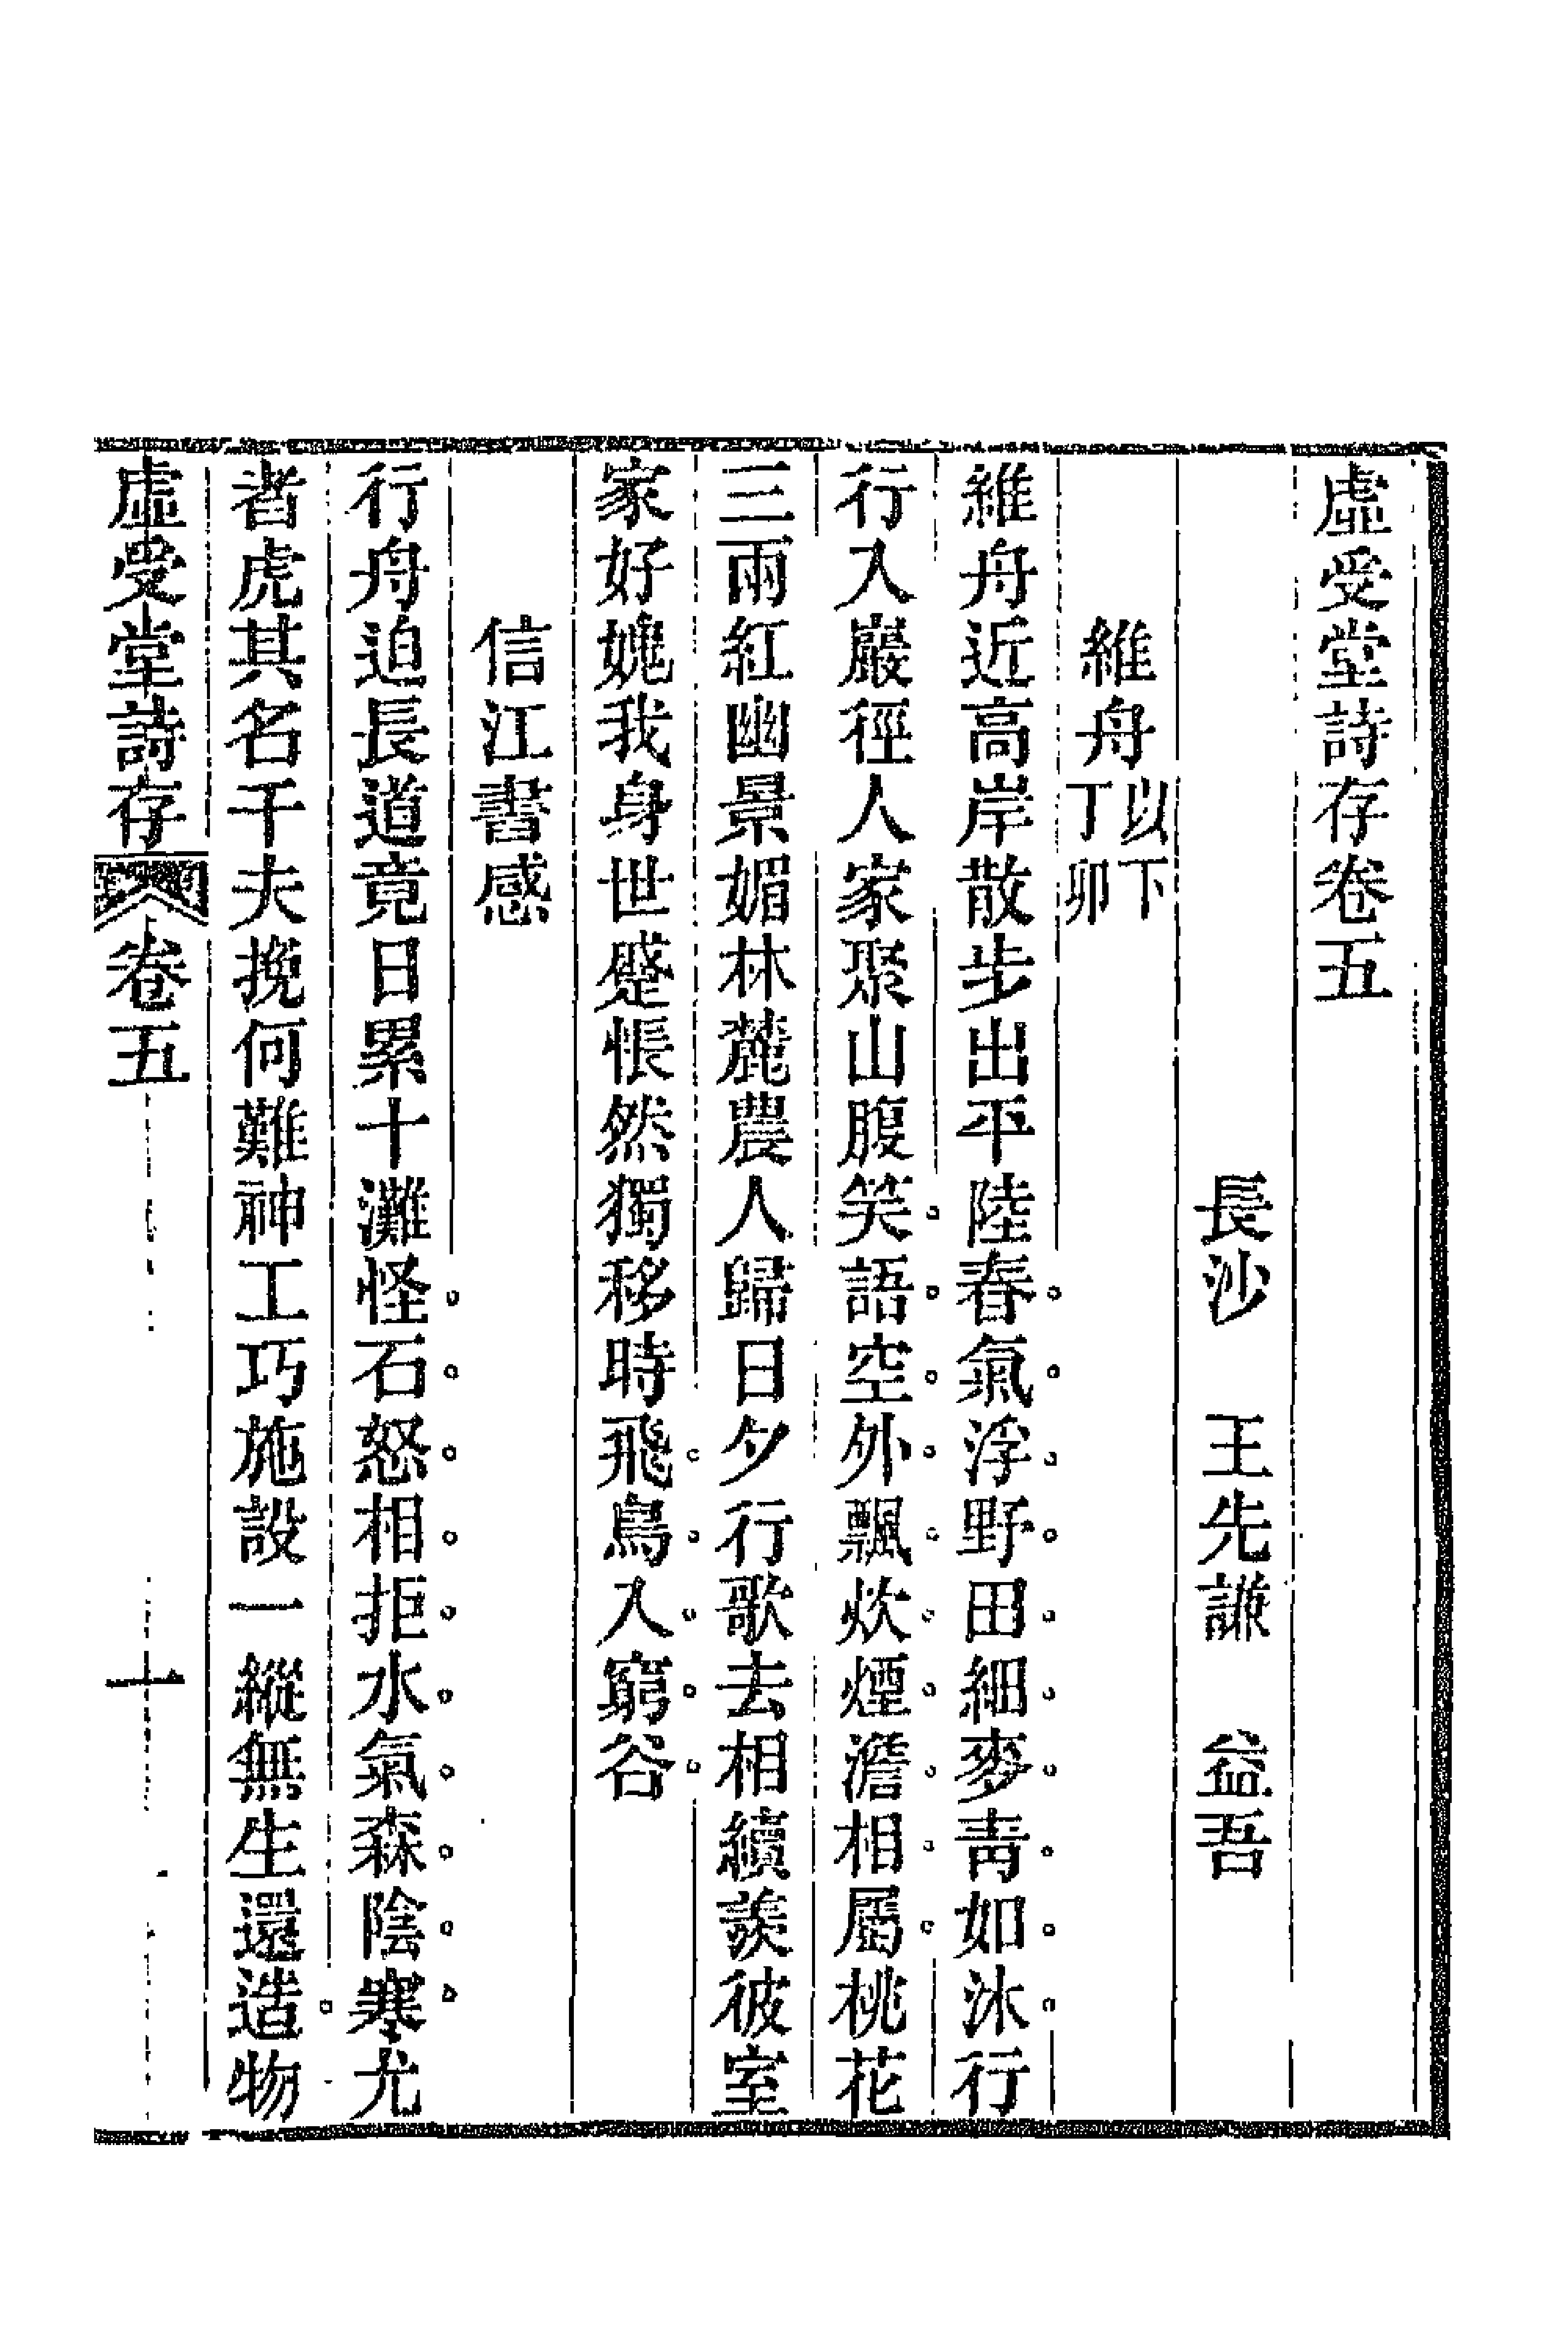 虛受堂詩存卷五
長沙　王先謙　益吾
維舟以下丁卯
維舟近高岸散步出平陸春氣浮野田細麥青如沐行
行入巖徑人家聚山腹笑語空外飄炊煙澹相屬桃花
三兩紅幽景媚林麓農人歸日夕行歌去相續羨彼室
家好媿我身世蹙悵然獨移時飛鳥入窮谷
信江書感
行舟迫長道竟日累十灘怪石怒相拒水氣森陰寒尤
者虎其名千夫挽何難神工巧施設一縱無生還造物
虛受堂詩存　卷五　十